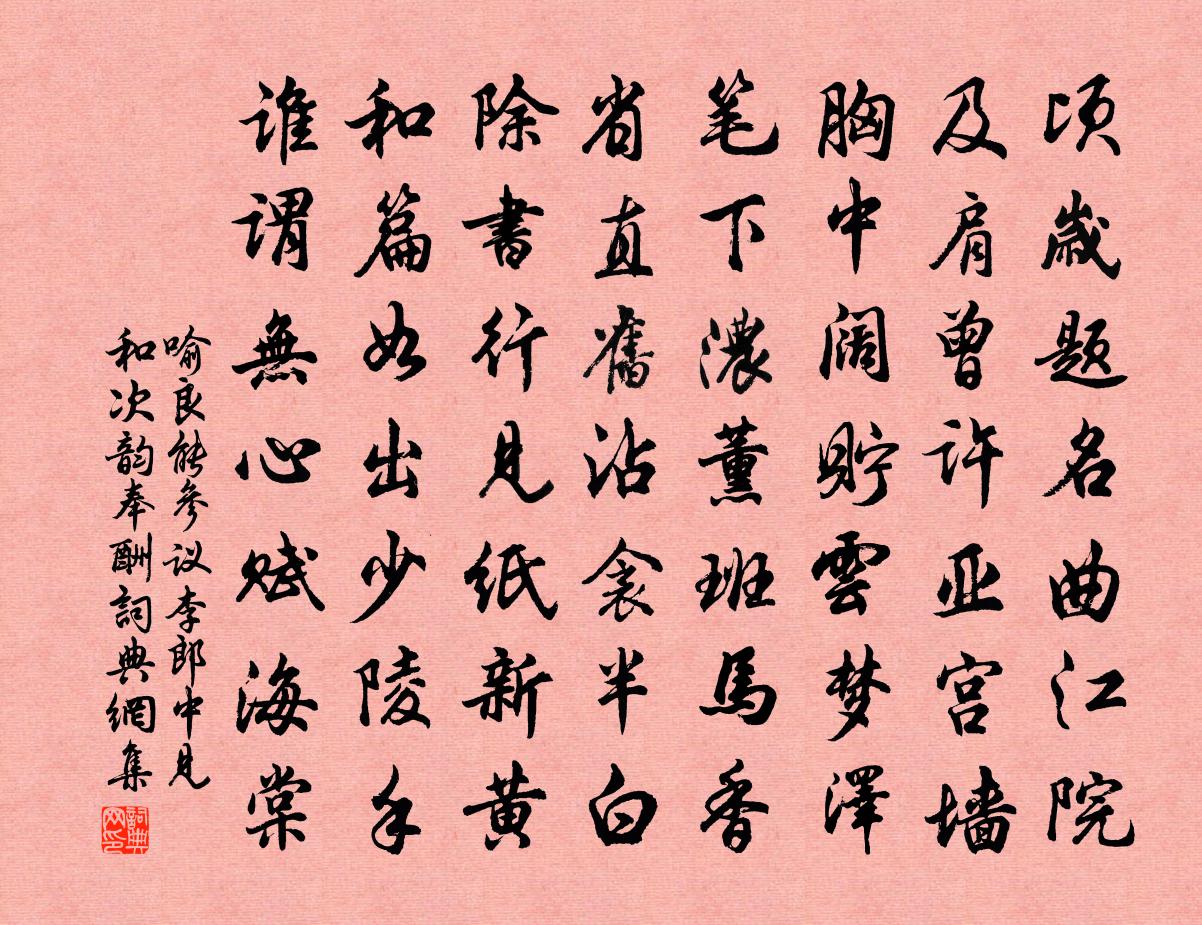 顷歳题名曲江院
及肩曾许亚宫墙
胸中阔貯雲梦澤
笔下濃薰班馬香
省直舊沾衾半白
除書行见纸新黄
和篇如出少陵手
谁謂無心赋海棠
喻良能参议李郎中见
和次韵奉酬詞典網集
詞典网印